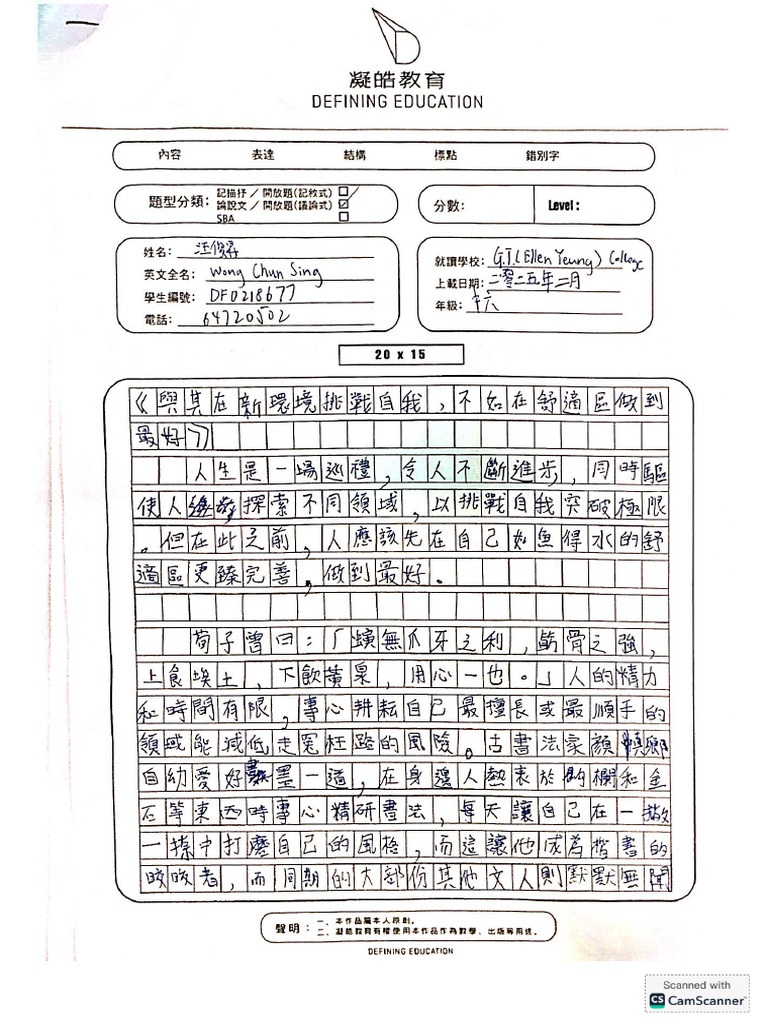 一
凝皓教育
DEFINING EDUCATION
內容 表達 結構 標點 錯別字
題型分類: 記描抒／開放題(記敘式)
論說文／開放題(議論式)
SBA
分數: Level:
姓名: 汪俊昇
英文全名: Wong Chun Sing
學生編號: DF0218677
電話: 64720502
就讀學校: G.T.(Ellen Yeung) College
上載日期: 二零二五年二月
年級: 中六
20 x 15
《與其在新環境挑戰自我，不如在舒適區做到
最好》
人生是一場巡禮，令人不斷進步，同時驅
使人探索不同領域，以挑戰自我突破極限
。但在此之前，人應該先在自己如魚得水的舒
適區更臻完善，做到最好。
荀子曾曰：「螾無爪牙之利，筋骨之強，
上食埃土，下飲黃泉，用心一也。」人的精力
和時間有限，專心耕耘自己最擅長或最順手的
領域能減低走冤枉路的風險。古書法家顏真卿
自幼愛好書墨一道，在身邊人熱衷於和金
石等東西時專心精研書法，每天讓自己在一撇
一捺中打磨自己的風格，而這讓他成為楷書的
佼佼者，而同期的大部份其他文人則默默無聞
聲明： 一、本作品屬本人原創。
二、凝皓教育有權使用本作品作為教學、出版等用途。
DEFINING EDUCATION
Scanned with
CS CamScanner